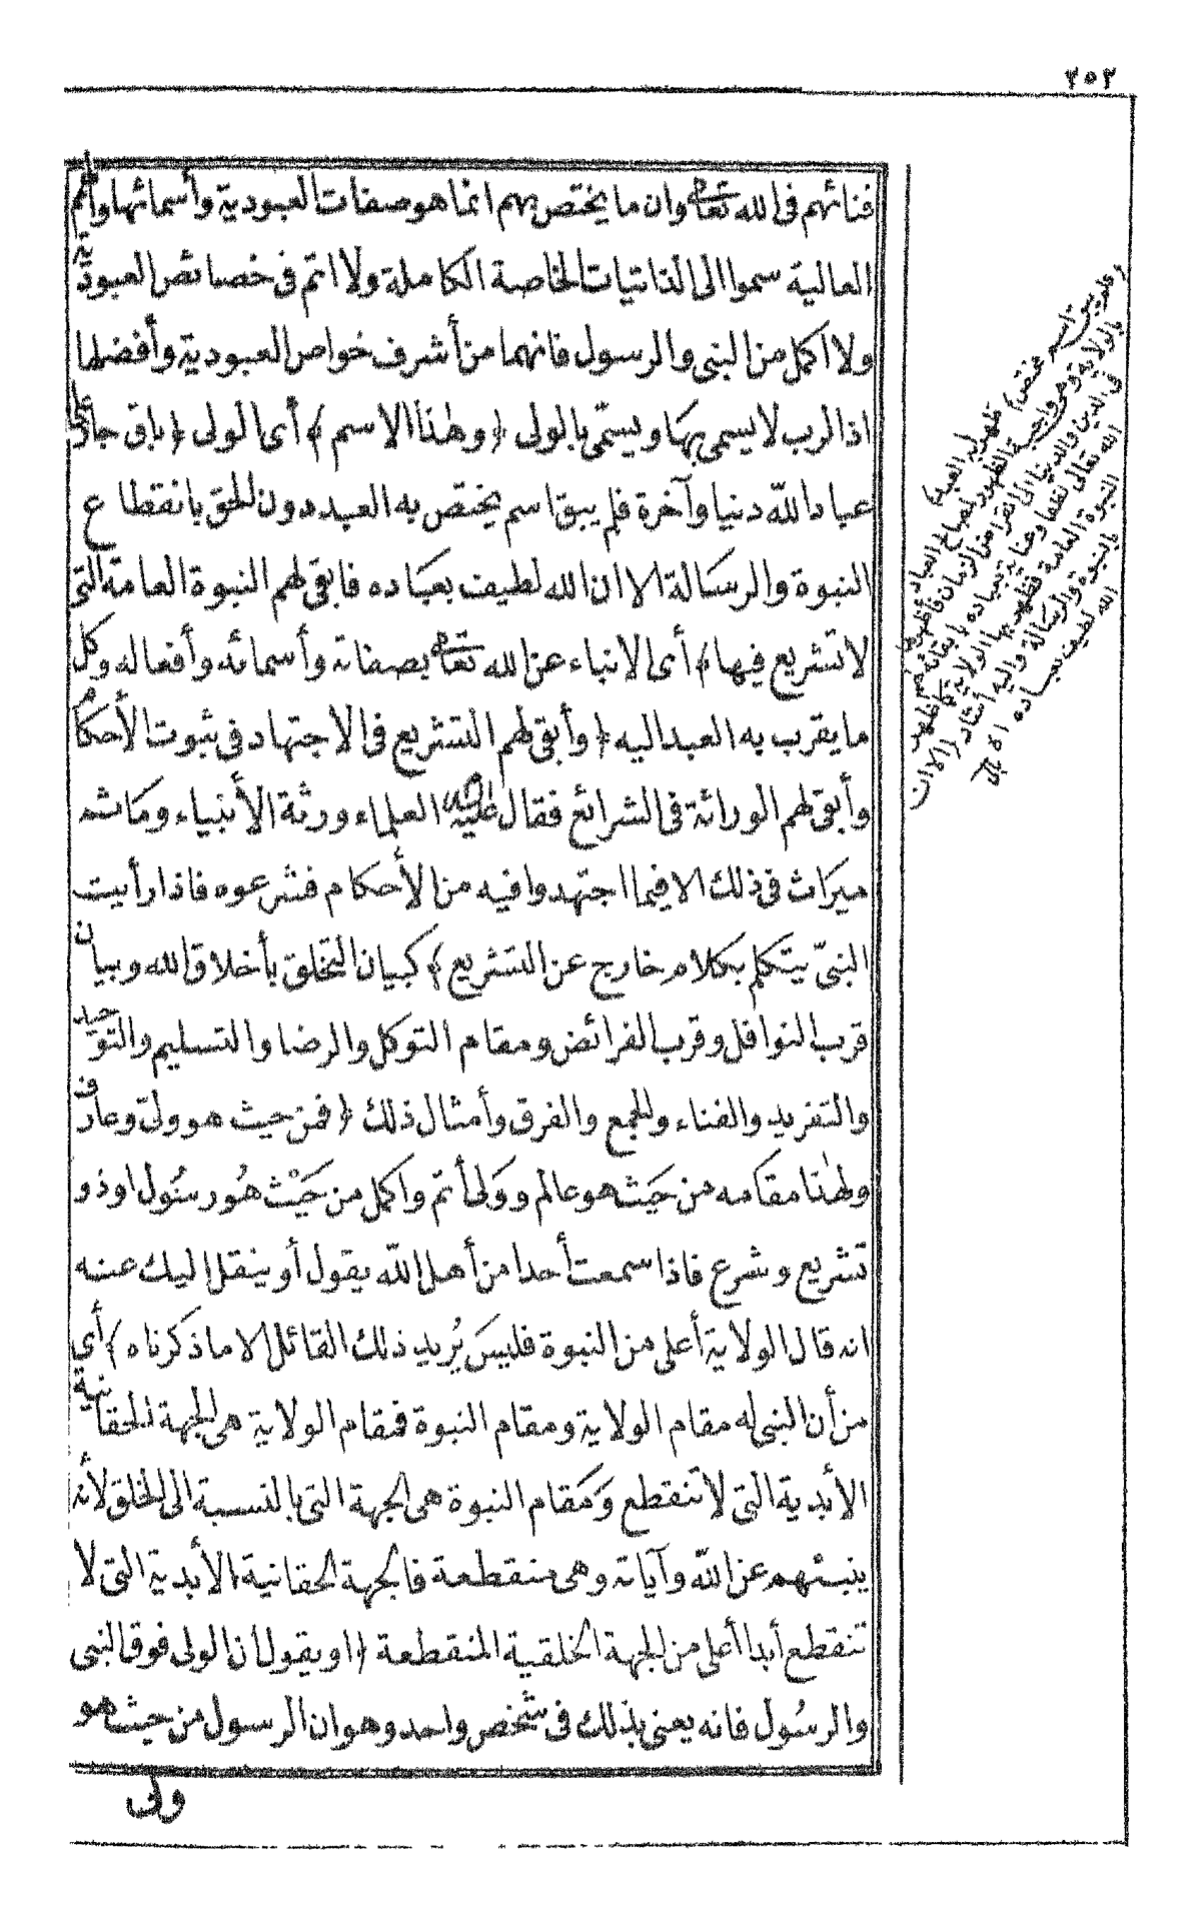 ٢٥٢
فنائهم فى الله تعالى وان ما يختص بهم انما هو صفات العبودية وأسمائها والهمم
العالية سموا الى الذاتيات الخاصة الكاملة ولا اتم فى خصائص العبودية
ولا اكمل من النبى والرسول فانهما من أشرف خواص العبودية وأفضلها
اذ الرب لا يسمى بها ويسمّى بالولى ﴿وهذا الاسم﴾ أى الولى ﴿باق جار على
عباد اللّه دنيا وآخرة فلم يبق اسم يختص به العبد دون الحق بانقطاع
النبوة والرسالة الا ان الله لطيف بعباده فابقى لهم النبوة العامة التى
لا تشريع فيها﴾ أى الانباء عن الله تعالى بصفاته وأسمائه وأفعاله وكل
ما يقرب به العبد اليه ﴿وأبقى لهم التشريع فى الاجتهاد فى ثبوت الأحكام
وأبقى لهم الوراثة فى الشرائع فقال عليه السلام العلماء ورثة الأنبياء وما ثمه
ميراث فى ذلك الا فيما اجتهدوا فيه من الأحكام فشرعوه فاذا رأيت
النبىّ يتكلم بكلام خارج عن التشريع﴾ كبيان التخلق بأخلاق الله وبيان
قرب النوافل وقرب الفرائض ومقام التوكل والرضا والتسليم والتوحيد
والتفريد والفناء والجمع والفرق وأمثال ذلك ﴿فمن حيث هو ولىّ وعارف
ولهذا مقامه من حيث هو عالم وولى أتم واكمل من حيث هو رسول او ذو
تشريع وشرع فاذا سمعت أحدا من أهل اللّه يقول أو ينقل اليك عنه
انه قال الولاية أعلى من النبوة فليس يريد ذلك القائل الا ما ذكرناه﴾ أى
من أن النبى له مقام الولاية ومقام النبوة فمقام الولاية هى الجهة الحقانية
الأبدية التى لا تنقطع ومقام النبوة هى الجهة التى بالنسبة الى الخلق لأنه
ينبئهم عن اللّه وآياته وهى منقطعة فالجهة الحقانية الأبدية التى لا
تنقطع أبدا أعلى من الجهة الخلقية المنقطعة ﴿او يقول ان الولى فوق النبى
والرسول فانه يعنى بذلك فى شخص واحد وهو ان الرسول من حيث هو
ولى